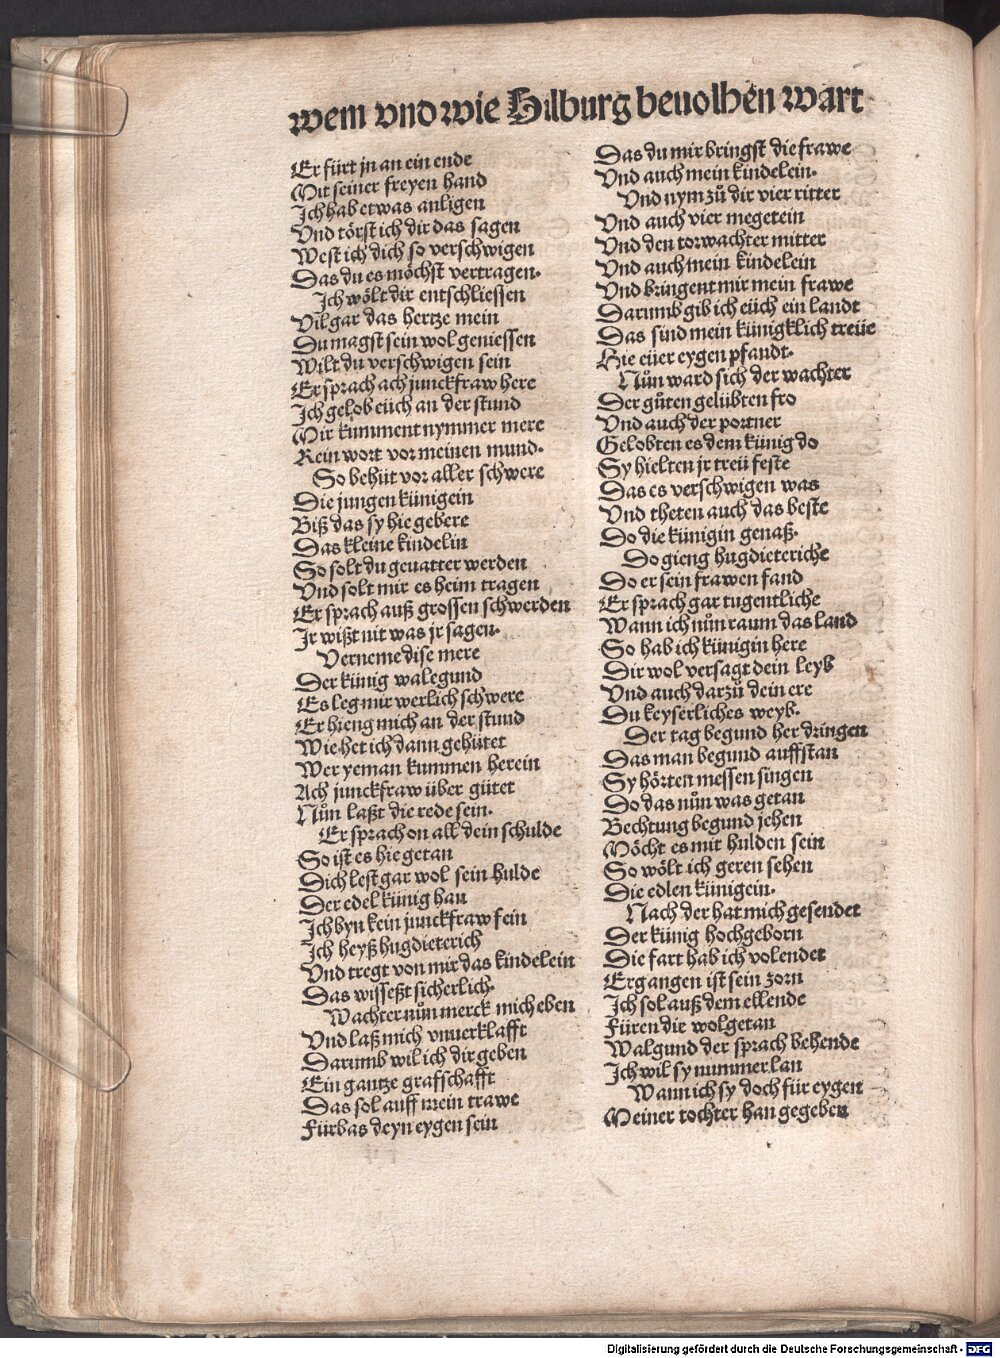 wem vnd wie Hilburg beuolhen wart
Er fürt jn an ein ende
Mit seiner freyen hand
Ich hab etwas anligen
Vnd törst ich dir das sagen
West ich dich so verschwigen
Das du es möchst vertragen.
Ich wölt dir entschliessen
Vil gar das hertze mein
Du magst sein wol geniessen
Wilt du verschwigen sein
Er sprach ach junckfraw here
Ich gelob eüch an der stund
Mir kumment nymmer mere
Kein wort vor meinen mund.
So behüt vor aller schwere
Die jungen künigein
Biß das sy hie gebere
Das kleine kindelin
So solt du geuatter werden
Vnd solt mir es heim tragen
Er sprach auß grossen schwerden
Ir wißt nit was jr sagen.
Verneme dise mere
Der künig walegund
Es leg mir werlich schwere
Er hieng mich an der stund
Wie het ich dann gehütet
Wer yeman kummen herein
Ach junckfraw über gütet
Nůn laßt die rede sein.
Er sprach on all dein schulde
So ist es hie getan
Dich lest gar wol sein hulde
Der edel künig han
Ich byn kein junckfraw fein
Ich heyß hugdieterich
Vnd tregt von mir das kindelein
Das wisseßt sicherlich.
Wachter nůn merck mich eben
Vnd laß mich vnuerklafft
Darumb wil ich dir geben
Ein gantze grafschafft
Das sol auff mein trawe
Fürbas deyn eygen sein
Das du mir bringst die frawe
Vnd auch mein kindelein.
Vnd nym zů dir vier ritter
Vnd auch vier megetein
Vnd den torwachter mitter
Vnd auch mein kindelein
Vnd bringent mir mein frawe
Darumb gib ich eüch ein landt
Das sind mein künigklich treüe
Hie eüer eygen pfandt.
Nůn ward sich der wachter
Der gůten gelübten fro
Vnd auch der portner
Gelobten es dem künig do
Sy hielten jr treü feste
Das es verschwigen was
Vnd theten auch das beste
Do die künigin genaß.
Do gieng hugdieteriche
Do er sein frawen fand
Er sprach gar tugentliche
Wann ich nůn raum das land
So hab ich künigin here
Dir wol versagt dein leyb
Vnd auch darzů dein ere
Du keyserliches weyb.
Der tag begund her dringen
Das man begund auffstan
Sy hörten messen singen
Do das nůn was getan
Bechtung begund jehen
Möcht es mit hulden sein
So wölt ich geren sehen
Die edlen künigein.
Nach der hat mich gesendet
Der künig hochgeborn
Die fart hab ich volendet
Ergangen ist sein zorn
Ich sol auß dem ellende
Füren dir wolgetan
Walgund der sprach behende
Ich wil sy nummer lan
Wann ich sy doch für eygen
Meiner tochter han gegeben
Digitalisierung gefördert durch die Deutsche Forschungsgemeinschaft - DFG